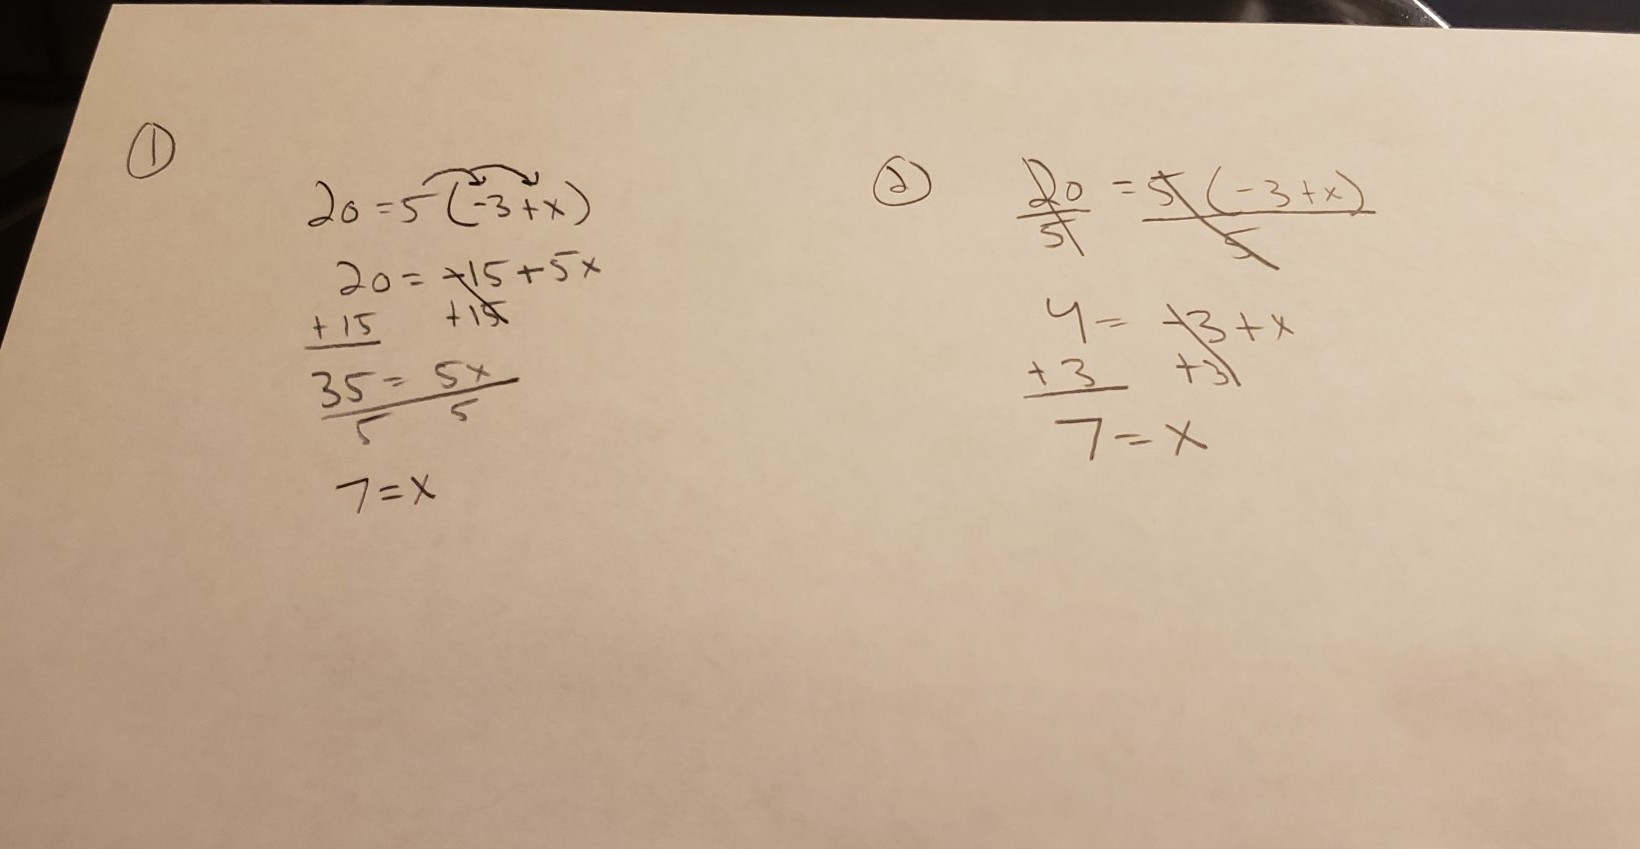 ①
20 = 5 (-3 + x)
20 = -15 + 5x
+15 +15
35 = 5x
5 5
7 = x
②
20 = 5 (-3 + x)
5 5
4 = -3 + x
+3 +3
7 = x